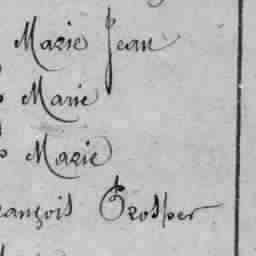 Marie Jean
Marie
Marie
ançois Prosper